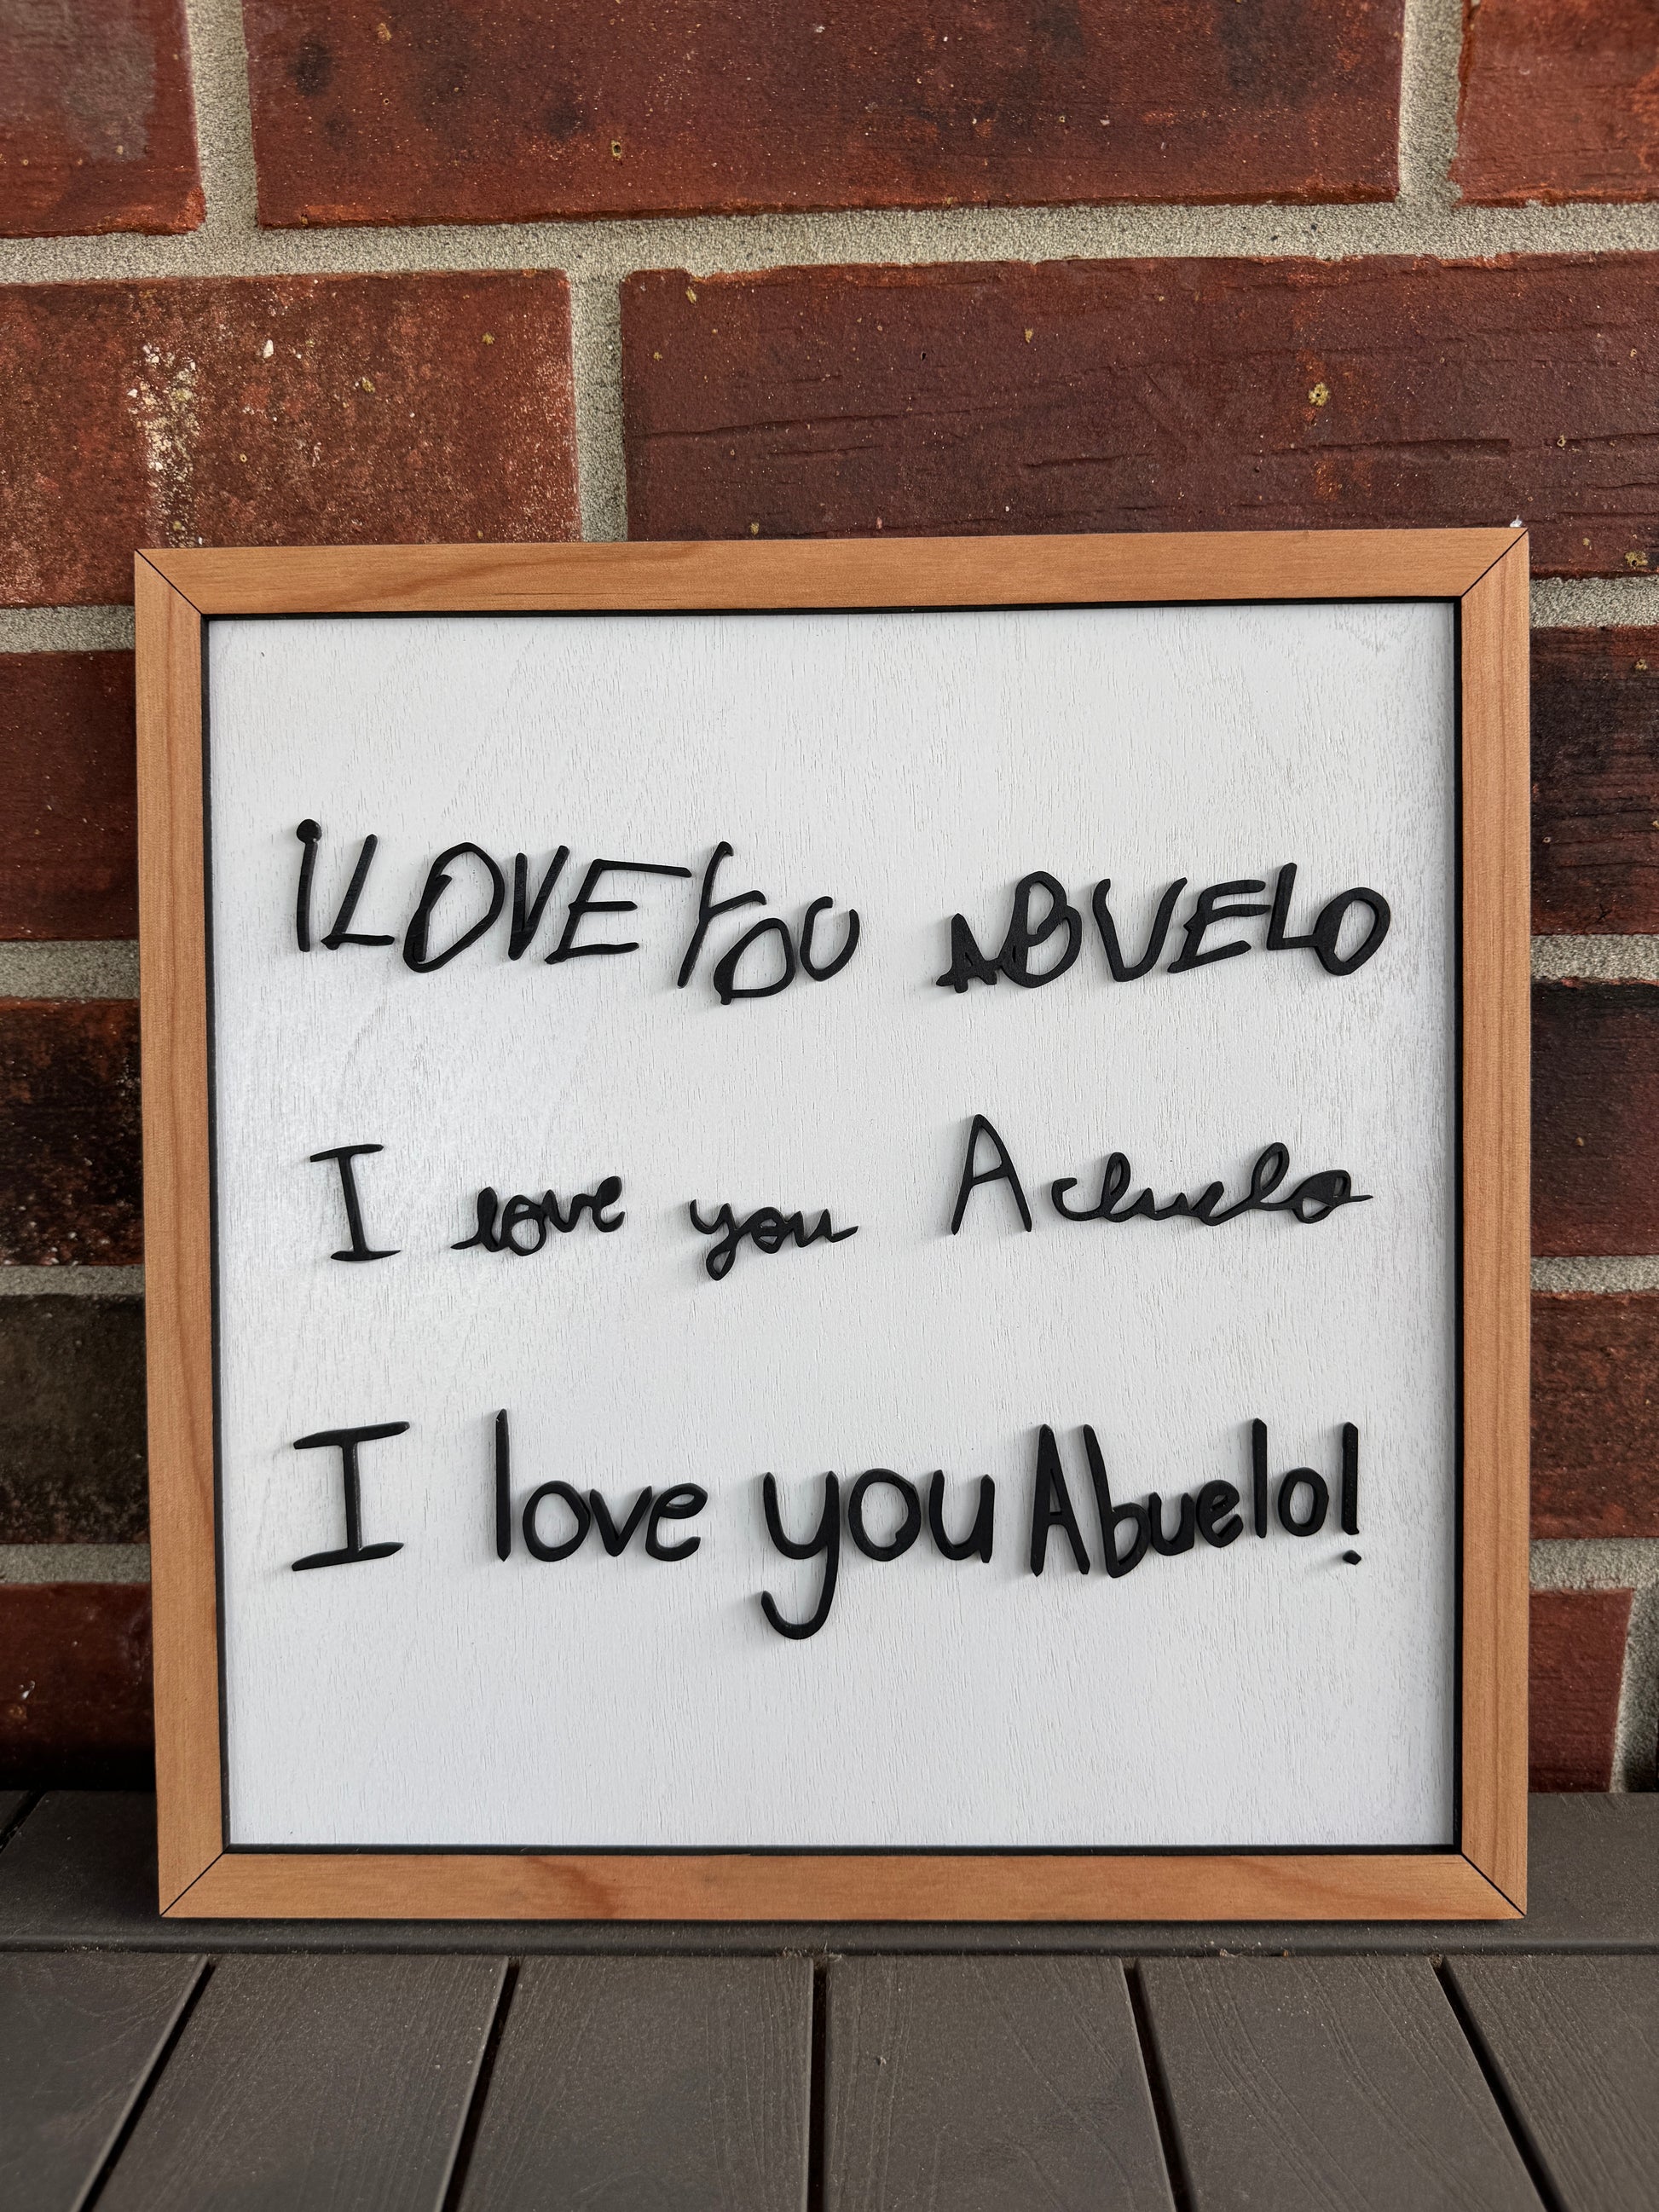 iLOVE YOU ABUELO
I love you Abuelo
I love you Abuelo!